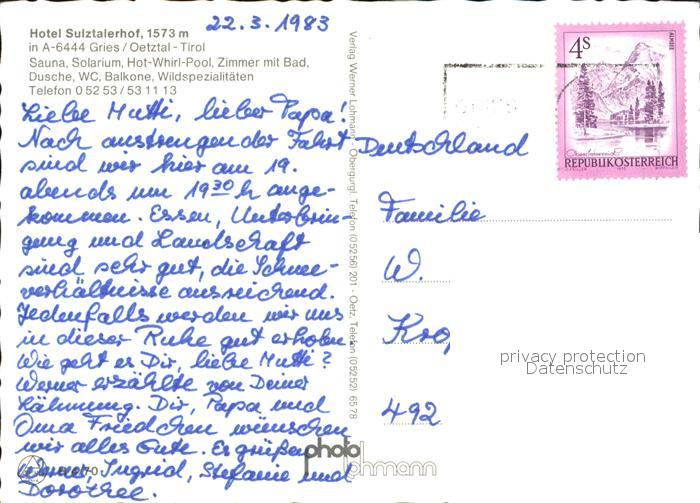 22.3.1983
Hotel Sulztalerhof, 1573 m
in A-6444 Gries / Oetztal - Tirol
Sauna, Solarium, Hot-Whirl-Pool, Zimmer mit Bad,
Dusche, WC, Balkone, Wildspezialitäten
Telefon 0 52 53 / 53 11 13
Liebe Mutti, lieber Papa!
Nach anstrengender Fahrt
sind wir hier am 19.
abends um 19³⁰ h ange-
kommen. Essen, Unterbrin-
gung und Landschaft
sind sehr gut, die Schnee-
verhältnisse ausreichend.
Jedenfalls werden wir uns
in dieser Ruhe gut erholen.
Wie geht es Dir, liebe Mutti?
Werner erzählte von Deiner
Lähmung. Dir, Papa und
Oma Friedchen wünschen
wir alles Gute. Es grüßen
Werner, Ingrid, Stefanie und
Dorothee.
Verlag Werner Lohmann, Obergurgl, Telefon (05256) 201 - Oetz, Telefon (05252) 65 78
4s
ALMSEE
REPUBLIK ÖSTERREICH
Deutschland
Familie
W.
Kro
492
privacy protection
Datenschutz
photo
lohmann